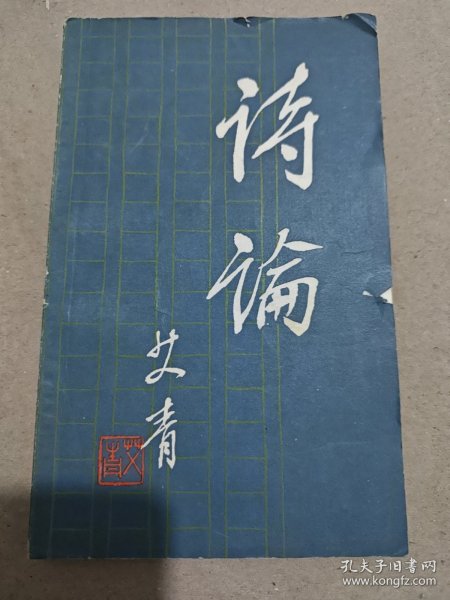 詩論
艾青
艾青
孔夫子旧书网
www.kongfz.com